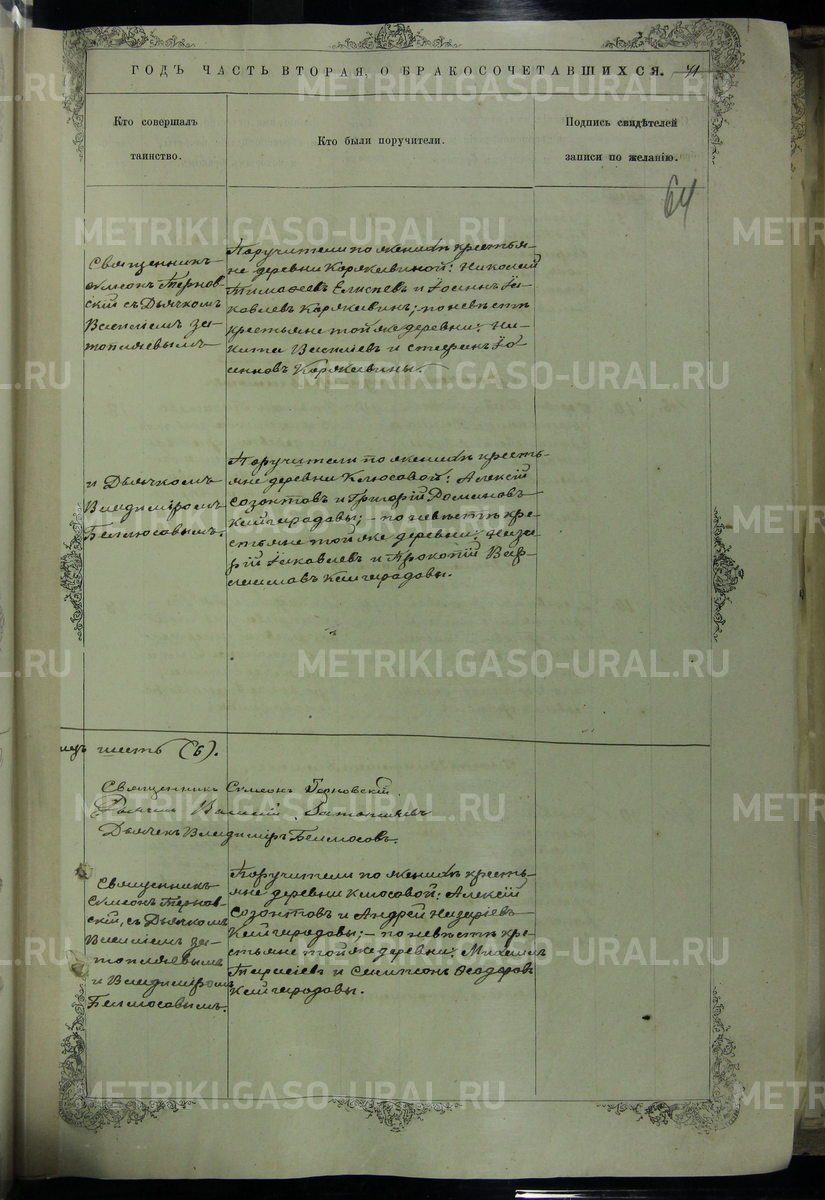 ГОДЪ ЧАСТЬ ВТОРАЯ, О БРАКОСОЧЕТАВШИХСЯ. 41
Кто совершалъ
таинство.
Кто были поручители.
Подпись свидѣтелей
записи по желанію.
64
Священникъ
Симеонъ Терновскій
съ Дьячкомъ
Василіемъ За-
топляевымъ
Поручители по женихѣ крестья-
не деревни Корякиной: Николай
Тимофеевъ Елисѣевъ и Іоаннъ Іа-
ковлевъ Корякинъ; по невѣстѣ
крестьяне той же деревни: Ни-
кита Василіевъ и Стефанъ Іо-
анновъ Корякины.
и Дьячкомъ
Владиміромъ
Белоусовымъ.
Поручители по женихѣ кресть-
яне деревни Клюсовой: Алексій
Созонтовъ и Григорій Романовъ
Кайгородовы; – по невѣстѣ кре-
стьяне той же деревни: Наза-
рій Іаковлевъ и Прокопій Вар-
лаамовъ Кайгородовы.
шесть (6).
Священникъ Симеонъ Терновскій
Василій Затопляевъ
Дьячекъ Владиміръ Белоусовъ.
Священникъ
Симеонъ Тернов-
скій, съ Дьячкомъ
Василіемъ За-
топляевымъ
и Владиміромъ
Белоусовымъ.
Поручители по женихѣ кресть-
яне деревни Клюсовой: Алексій
Созонтовъ и Андрей Назаріевъ
Кайгородовы; – по невѣстѣ кре-
стьяне той же деревни: Михаилъ
Тарасіевъ и Сампсонъ Ѳеодоровъ
Кайгородовы.
METRIKI.GASO-URAL.RU